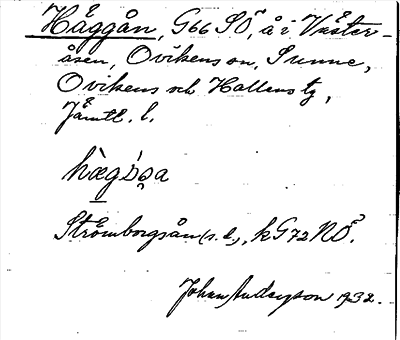 Häggån, G66 SÖ, å i Väster-
åsen, Ovikens sn, Sunne,
Ovikens och Hallens tg,
Jämtl. l.
hæg̀s̀oa
Strömborgsån (s. d.), k G72 NÖ.
Johan Anderzson 1932.